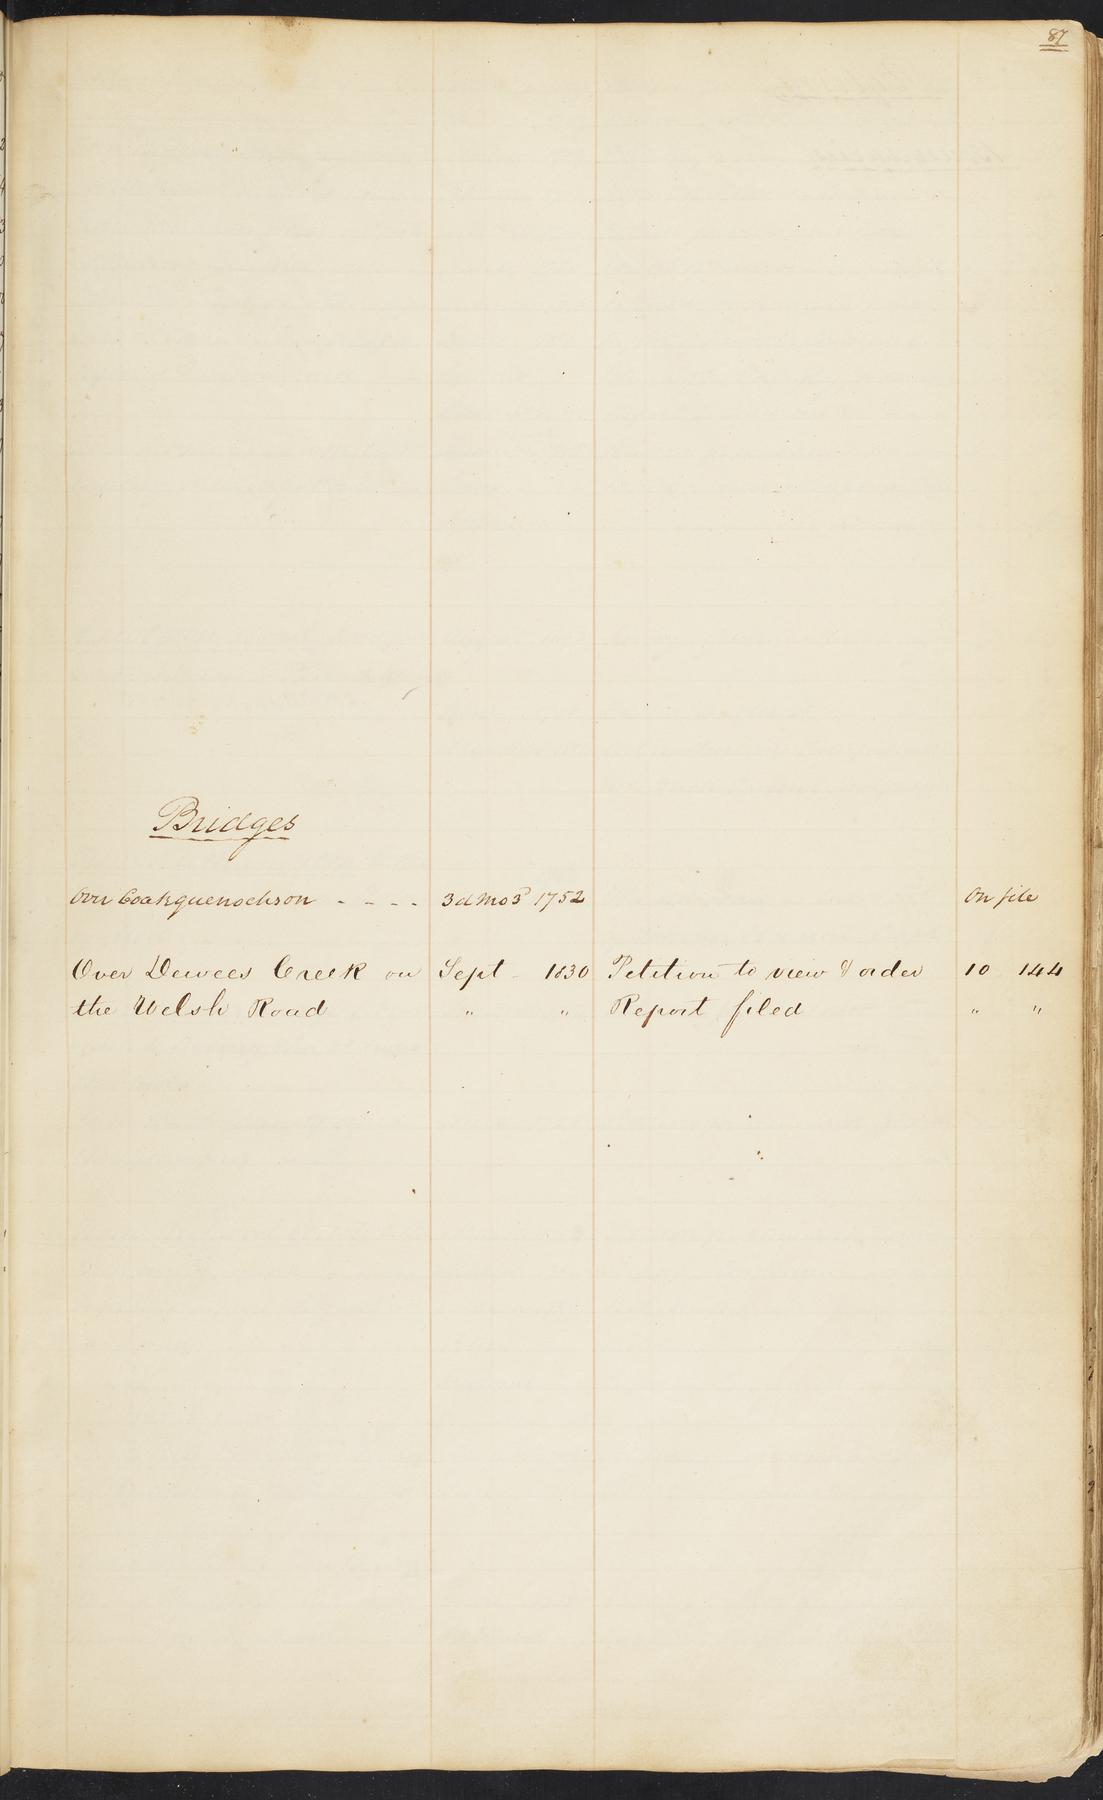 87
Bridges
Over Coakquenockson - - - - 3d Mo 3d 1752 On file
Over Dewees Creek on Sept - 1830 Petition to view & order 10 144
the Welsh Road " " Report filed " "